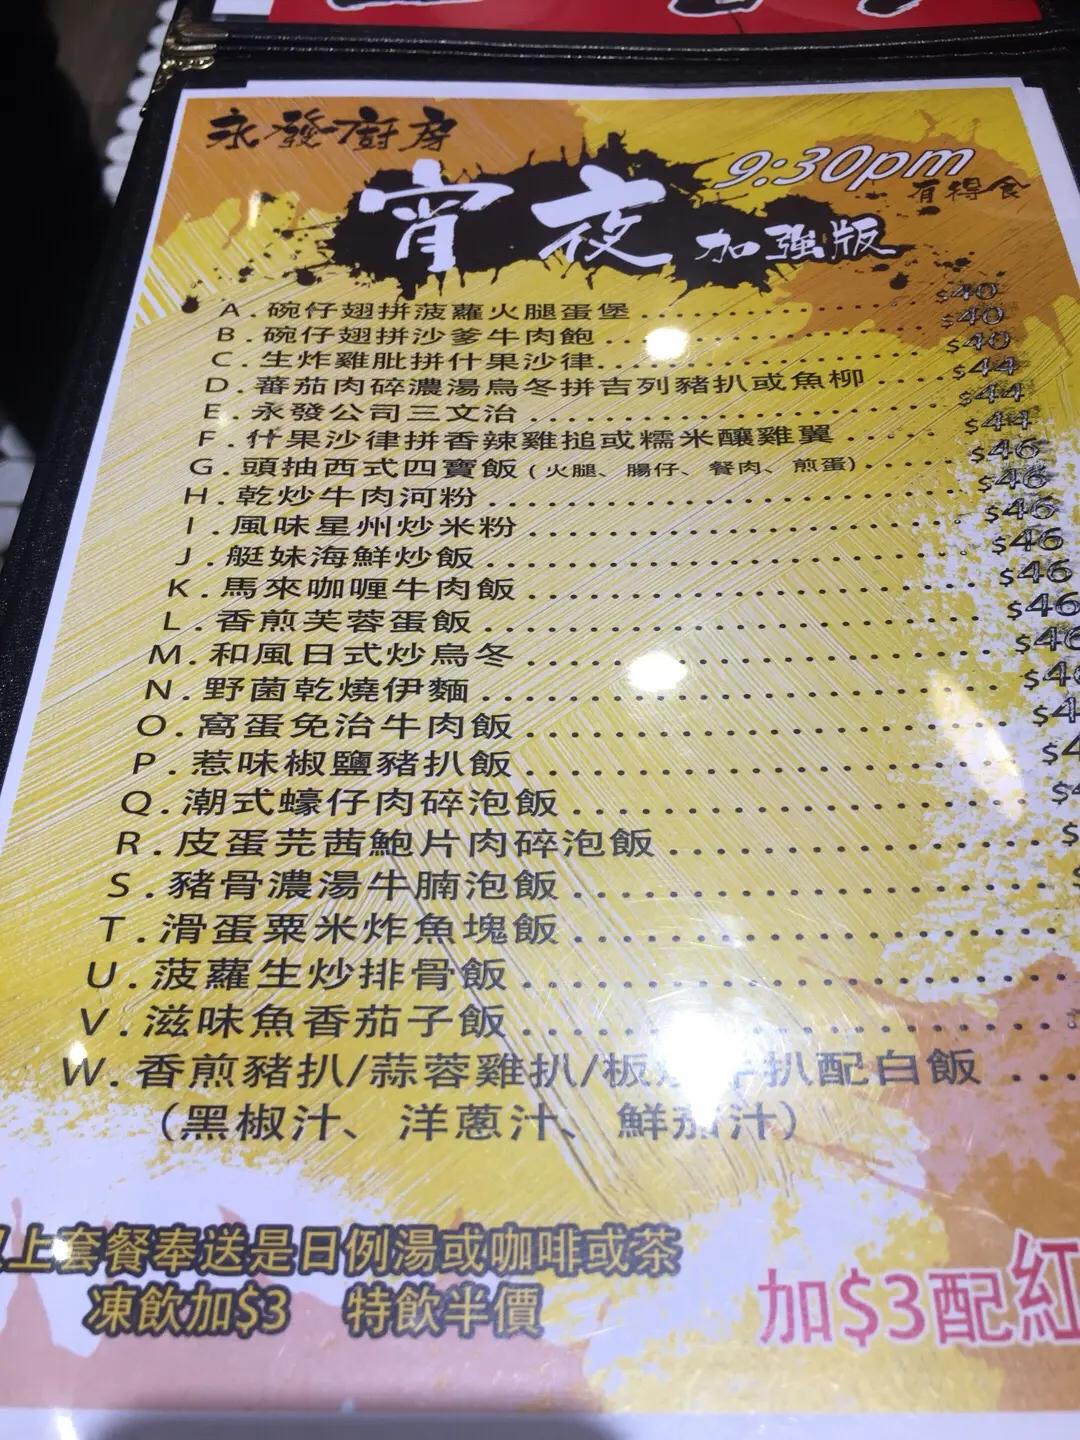 永發廚房
9:30pm
有得食
宵夜 加強版
A.碗仔翅拼菠蘿火腿蛋堡 $40
B.碗仔翅拼沙爹牛肉飽 $40
C.生炸雞肶拼什果沙律 $40
D.蕃茄肉碎濃湯烏冬拼吉列豬扒或魚柳 $44
E.永發公司三文治 $44
F.什果沙律拼香辣雞搥或糯米釀雞翼 $44
G.頭抽西式四寶飯(火腿、腸仔、餐肉、煎蛋) $46
H.乾炒牛肉河粉 $46
I.風味星州炒米粉 $46
J.艇妹海鮮炒飯 $46
K.馬來咖喱牛肉飯 $46
L.香煎芙蓉蛋飯 $46
M.和風日式炒烏冬
N.野菌乾燒伊麵
O.窩蛋免治牛肉飯
P.惹味椒鹽豬扒飯
Q.潮式蠔仔肉碎泡飯
R.皮蛋芫茜鮑片肉碎泡飯
S.豬骨濃湯牛腩泡飯
T.滑蛋粟米炸魚塊飯
U.菠蘿生炒排骨飯
V.滋味魚香茄子飯
W.香煎豬扒/蒜蓉雞扒/板 扒配白飯
(黑椒汁、洋蔥汁、鮮茄汁)
上套餐奉送是日例湯或咖啡或茶
凍飲加$3 特飲半價
加$3配紅